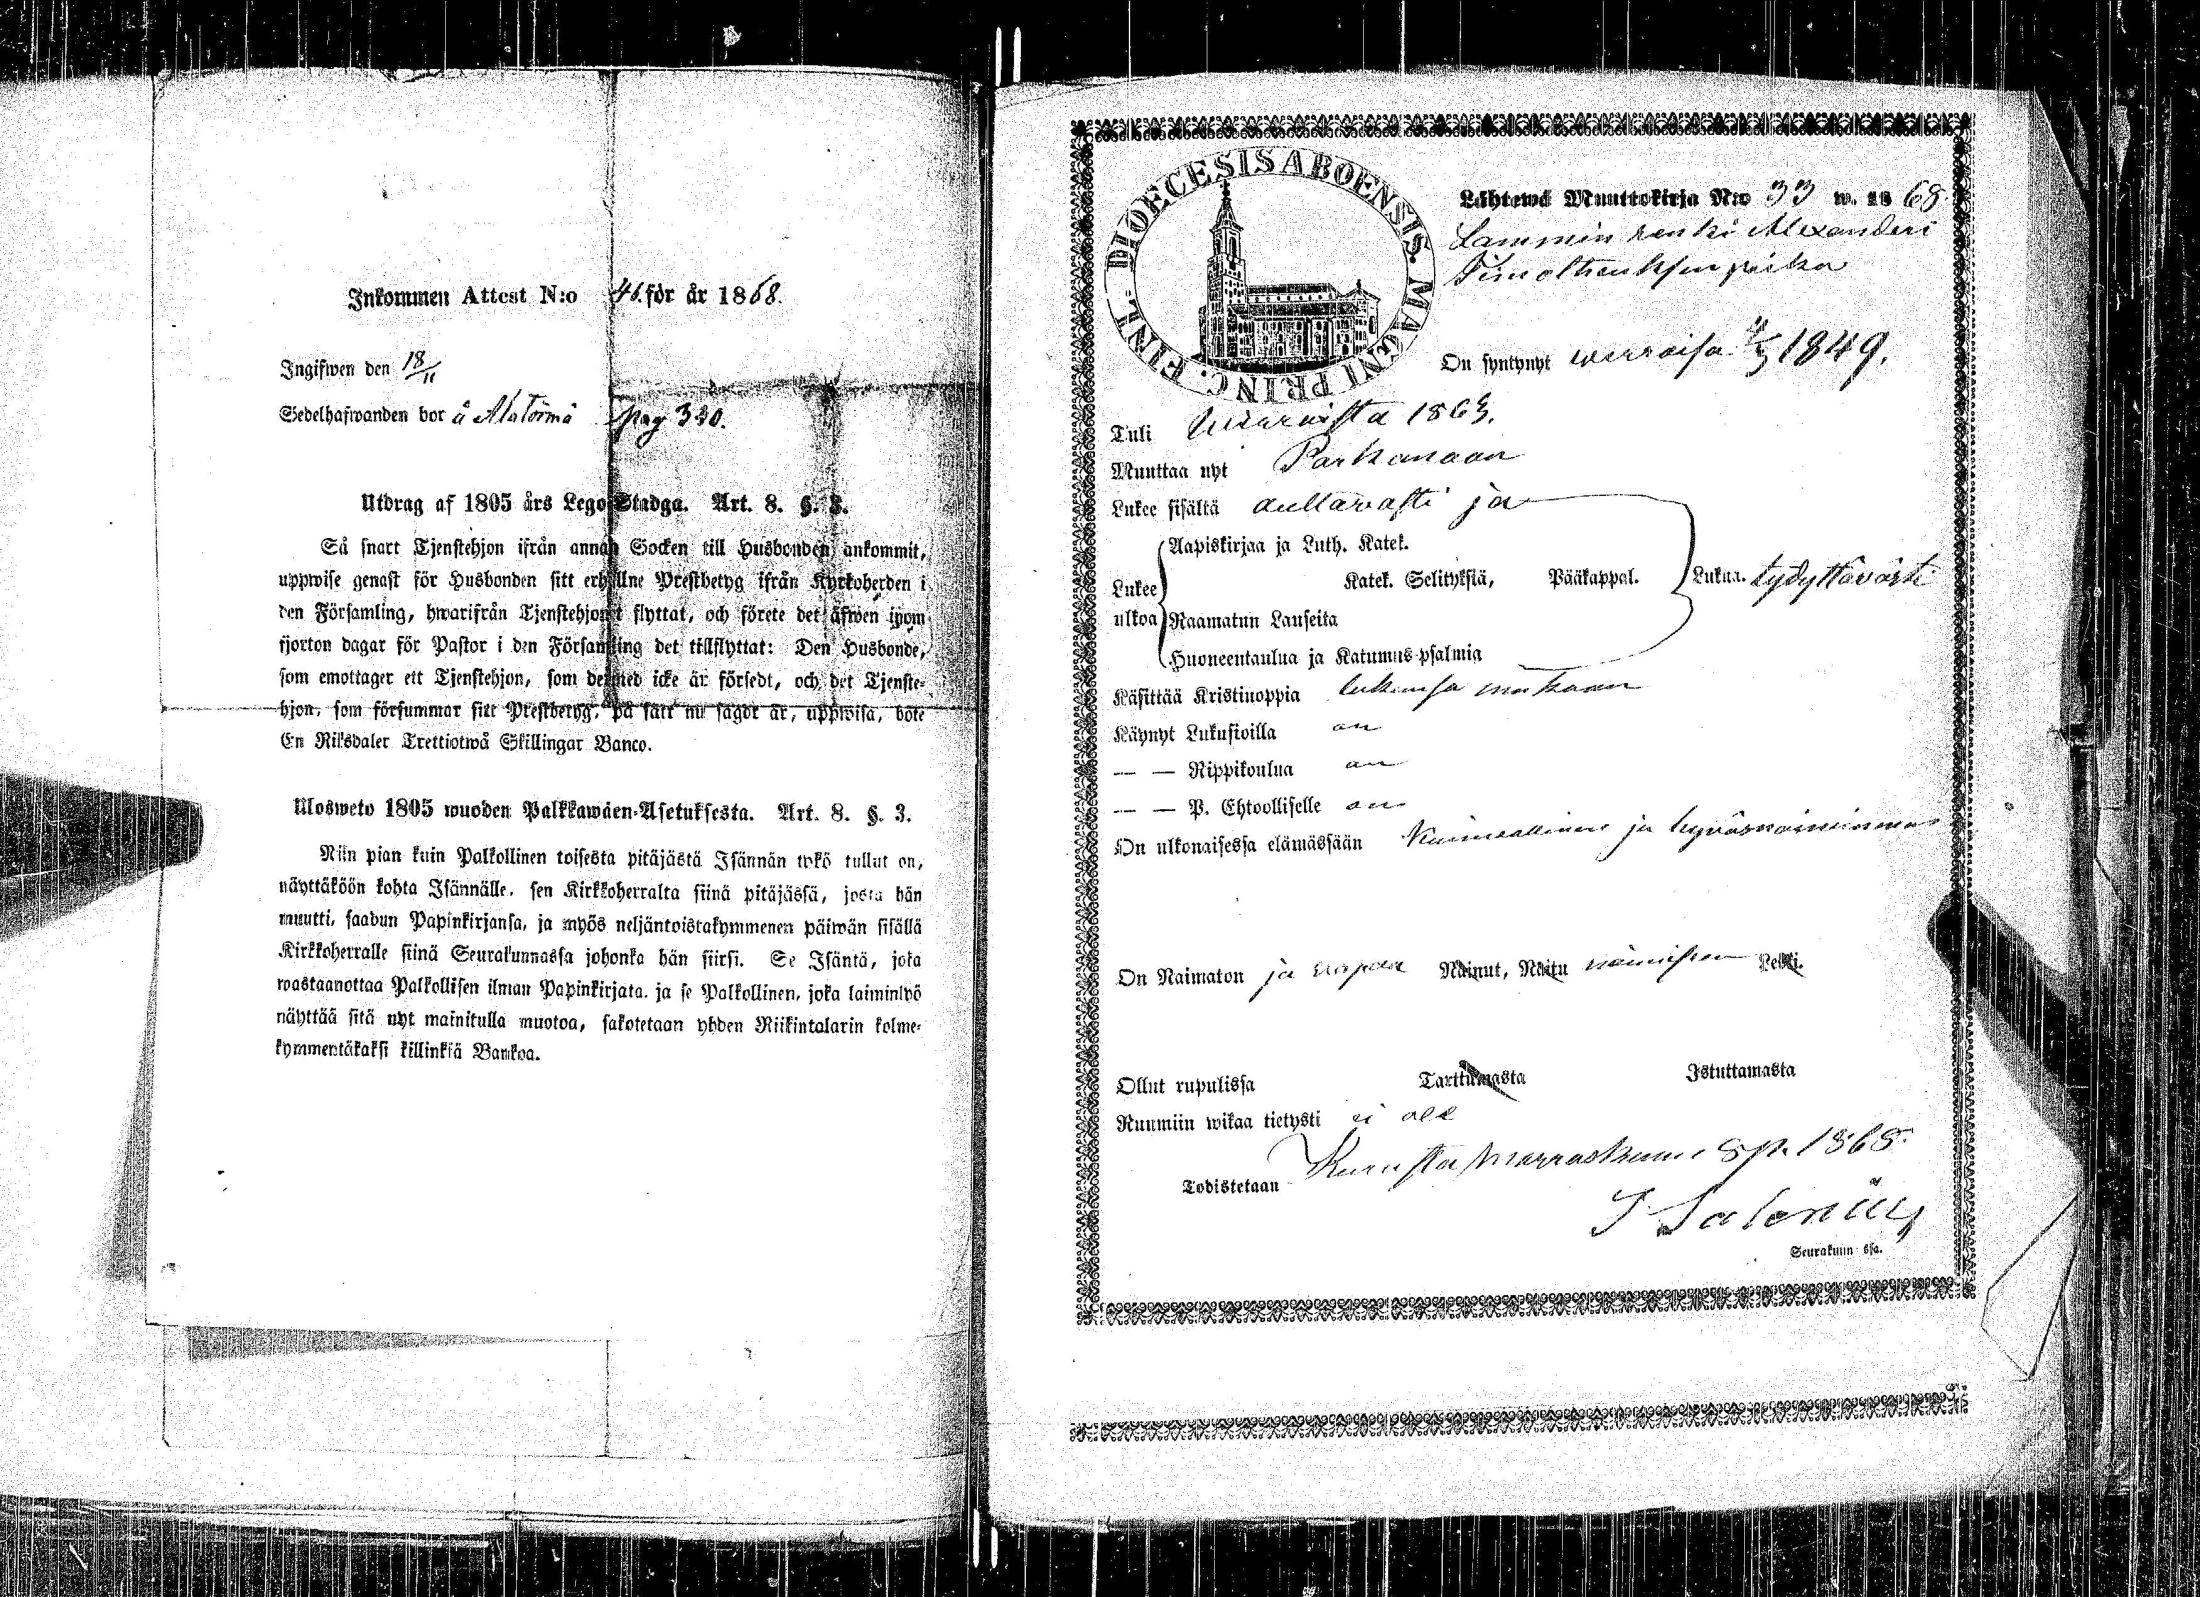 Inkommen Attest N:o 46. för år 1868.
Ingifwen den 18/11
Sedelhafwanden bor å Alatörmä pag 330.
Utdrag af 1805 års Lego-Stadga. Art. 8. §. 3.
Så snart Tjenstehjon ifrån annan Socken till Husbonden ankommit,
uppwise genast för Husbonden sitt erhållne Prestbetyg ifrån Kyrkoherden i
den Församling, hwarifrån Tjenstehjonet flyttat, och förete det äfwen inom
fjorton dagar för Pastor i den Församling det tillflyttat: Den Husbonde,
som emottager ett Tjenstehjon, som dermed icke är försedt, och det Tjenste-
hjon, som försummar sitt Prestbetyg, på sätt nu sagdt är, uppwisa, böte
En Riksdaler Trettiotwå Skillingar Banco.
Ulosweto 1805 wuoden Palkkawäen-Asetuksesta. Art. 8. §. 3.
Niin pian kuin Palkollinen toisesta pitäjästä Isännän työkö tullut on,
näyttäköön kohta Isännälle, sen Kirkkoherralta siinä pitäjässä, josta hän
muutti, saadun Papinkirjansa, ja myös neljäntoistakymmenen päiwän sisällä
Kirkkoherralle siinä Seurakunnassa johonka hän siirsi. Se Isäntä, joka
wastaanottaa Palkollisen ilman Papinkirjata, ja se Palkollinen, joka laiminlyö
näyttää sitä nyt mainitulla muotoa, sakotetaan yhden Riikintalarin kolme-
kymmentäkaksi killinkiä Bankoa.
DIOECESIS ABOENSIS. MAGNI PRINC. FINL.
Lähtewä Muuttokirja N:o 33 w. 18 68.
Lammin renki Alexanderi
Timotheuksen poika
On syntynyt 1849.
Tuli 1863.
Muuttaa nyt Parkanoon
Lukee sisältä auttawasti ja
Lukee ulkoa
Aapiskirjaa ja Luth. Katek.
Katek. Selityksiä, Pääkappal. Lukua. tydyttäwästi
Raamatun Lauseita
Huoneentaulua ja Katumus-psalmia
Käsittää Kristinoppia lukunsa mukaan
Käynyt Lukusioilla on
— — Rippikoulua on
— — P. Ehtoolliselle on
On ulkonaisessa elämässään kunniallinen ja hywämaineinen
On Naimaton ja wapaa Nainut, Naitu naimiseen Leski.
Ollut rupulissa Tarttumasta Istuttamasta
Ruumiin wikaa tietysti ei ole
Todistetaan Kurusta Marraskuun 8 p. 1868.
J Salonius
Seurakunnassa.